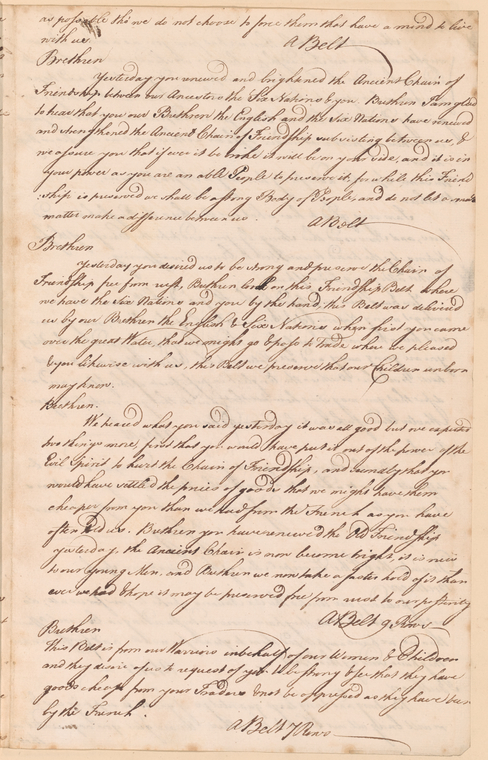 as possible tho we do not choose to force them that have a mind to live
with us.
A Belt
Brethren
Yesterday you renewed and brightened the Ancient Chain of
Friendship between our Ancestors the Six Nations & you. Brethren I am glad
to hear that you our Brethren the English and the Six Nations have renewed
and strengthened the Ancient Chain of Friendship subsisting between us, &
we assure you that if ever it be broke it will be on your side, and it is in
your power as you are an able People to preserve it, for while this Friend
:ship is preserved we shall be a strong Body of People, and do not let a small
matter make a difference between us.
A Belt
Brethren
Yesterday you desired us to be strong and preserve the Chain of
Friendship free from rust, Brethren look on this Friendship Belt where
we have the Six Nations and you by the hand; this Belt was delivered
us by our Brethren the English & Six Nations when first you came
over the great Water, that we might go & pass to Trade where we pleased
& you likewise with us, this Belt we preserve that our Children unborn
may know.
Brethren.
We heard what you said yesterday it was all good but we expected
two things more, first that you would have put it out of the power of the
Evil Spirit to hurt the Chain of Friendship, and secondly that you
would have settled the prices of goods that we might have them
cheaper from you than we had from the French as you have
often told us. Brethren you have renewed the Old Friendship
yesterday, the Ancient Chain is now become bright, it is new
to our Young Men, and Brethren we now take a faster hold of it than
ever we had & hope it may be preserved free from rust to our posterity
A Belt 9 Rows
Brethren
This Belt is from our Warriors in behalf of our Women & Children
and they desire of us to request of you to be strong & see that they have
goods cheap from your Traders & not be oppressed as they have been
by the French.
A Belt 7 Rows